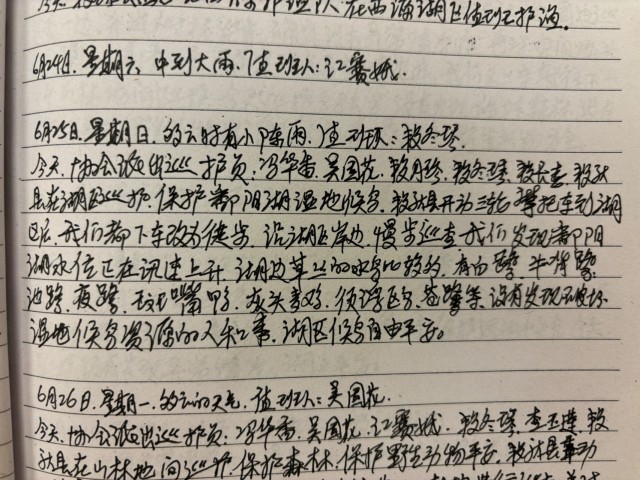 在西源湖区值班护渔。
6月24日.星期六.中到大雨.值班人:江赛娥.
6月25日.星期日.多云时有小阵雨.值班人:敖冬琴.
今天.协会派出巡护员.冯华香.吴国花.敖月珍.敖冬琴.敖长查.敖
在湖区巡护.保护鄱阳湖湿地候鸟.开动三轮摩托车到湖
区后.我们都下车改为徒步.沿湖区岸边.慢步巡查.我们发现鄱阳
湖水位正在迅速上升.湖边草上的水鸟比较多.有白鹭.牛背鹭.
池鹭.夜鹭.斑嘴鸭.灰头麦鸡.须浮鸥.苍鹭等.没有发现破坏
湿地候鸟资源的人和事.湖区候鸟自由平安。
6月26日.星期一.多云的天气.值班人:吴国花.
今天.协会派出巡护员.冯华香.吴国花.江赛娥.敖冬琴.李玉莲.敖
在山林地间巡护.保护森林.保护野生动物平安.